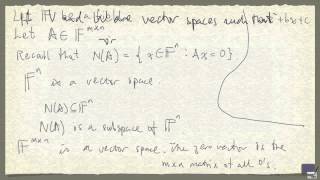 vector spaces such that +bx+c
Let A ∈ 𝔽^{m×n}
Recall that N(A) = { x ∈ 𝔽^n : Ax = 0 }
𝔽^n is a vector space.
N(A) ⊆ 𝔽^n
N(A) is a subspace of 𝔽^n
𝔽^{m×n} is a vector space. The zero vector is the
m×n matrix of all 0's.